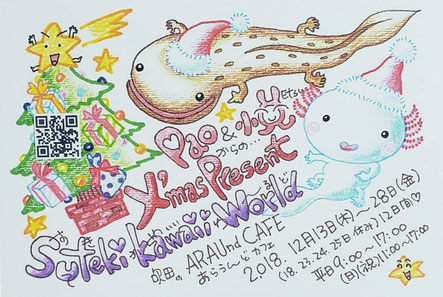 Pao & 小覚
etsu
からの…
X'mas Present
Suteki kawaii World
吹田の ARAUnd CAFE
あらうんど カフェ
2018. 12月13日(木)～28日(金)
(18.23.24.25日休み)12日間♡
平日 9:00～17:00
(日)(祝) 11:00～17:00